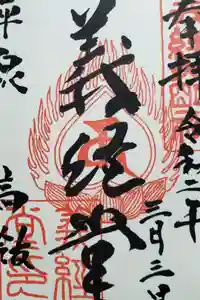 奉拝 令和二年
三月三日
義経堂
平泉 高舘
義経堂